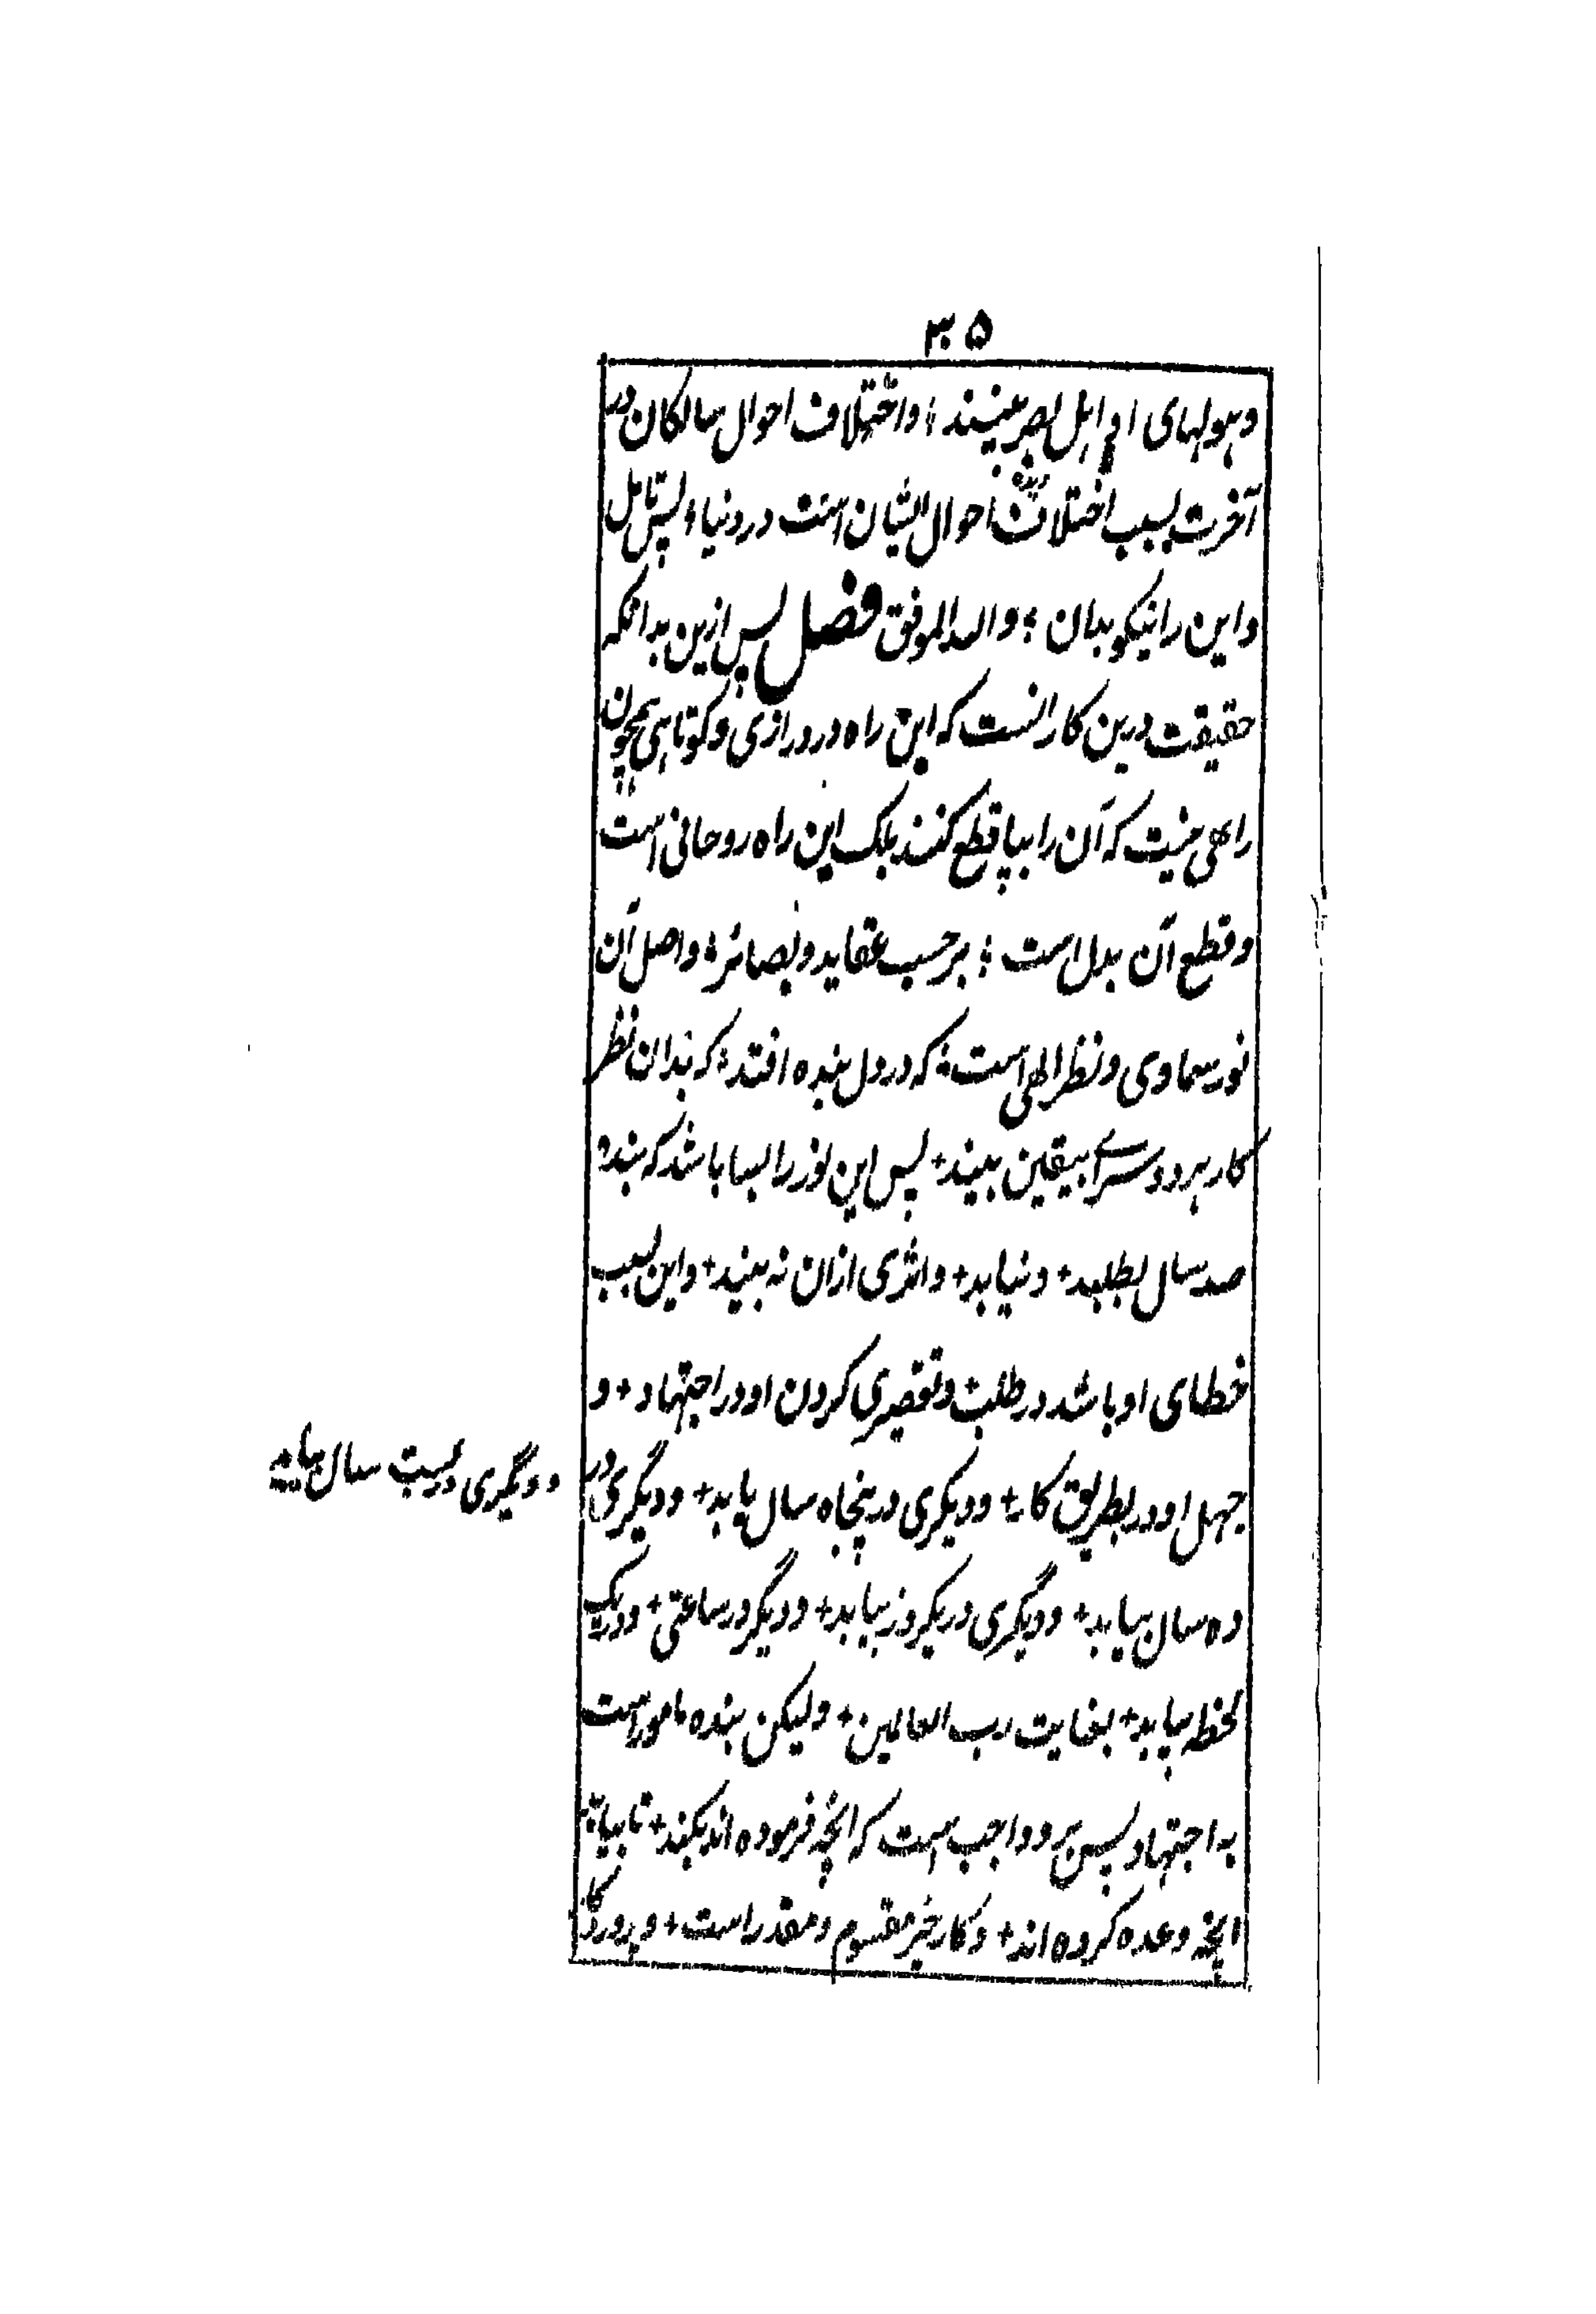 ۳۰۵
وہولہای او اہل بصر بینند ؛ واختلاف احوال سالکان در
آخرت بسبب اختلاف احوال ایشان است در دنیا ؛ پس تامل
واین را نیکو بدان ؛ واللہ الموفق فصل پس ازین بدانکہ
حقیقت درین کار انست کہ این راہ در درازی و کوتاہی ہمچون
راھی نیست کہ آن را بپا قطع کنند بلک این راہ روحانی است
وقطع آن بدل است ؛ برحسب عقاید وبصائر ؛ واصل آن
نور سماوی ونظر الھی است ؛ کہ در دل بندہ افتد ؛ کہ بدان نظر
کار ہر دو سرای بیقین بیند + پس این نور را بسا باشد کہ بندہ
صد سال بطلبد + ونیابد + واثری ازان نہ بیند + واین بسبب
خطای او باشد در طلب وتقصیری کردن او در اجتہاد + و
جہل او در بطریق کار + ودیکری در پنجاہ سال یابد + ودیگری در
ودیگری در بیست سال بیابد
دہ سال بیابد + ودیگری در یکروز بیابد + ودیگر در ساعتی + ودر یک
لحظہ بیابد + بعنایت رب العالمین + ولیکن بندہ مامور است
بہ اجتہاد پس برو واجب است کہ انچہ فرمودہ اند بکند + تا بیابد
انچہ وعدہ کردہ اند + وکار خیر مقسوم ومقدر است + وپروردگار